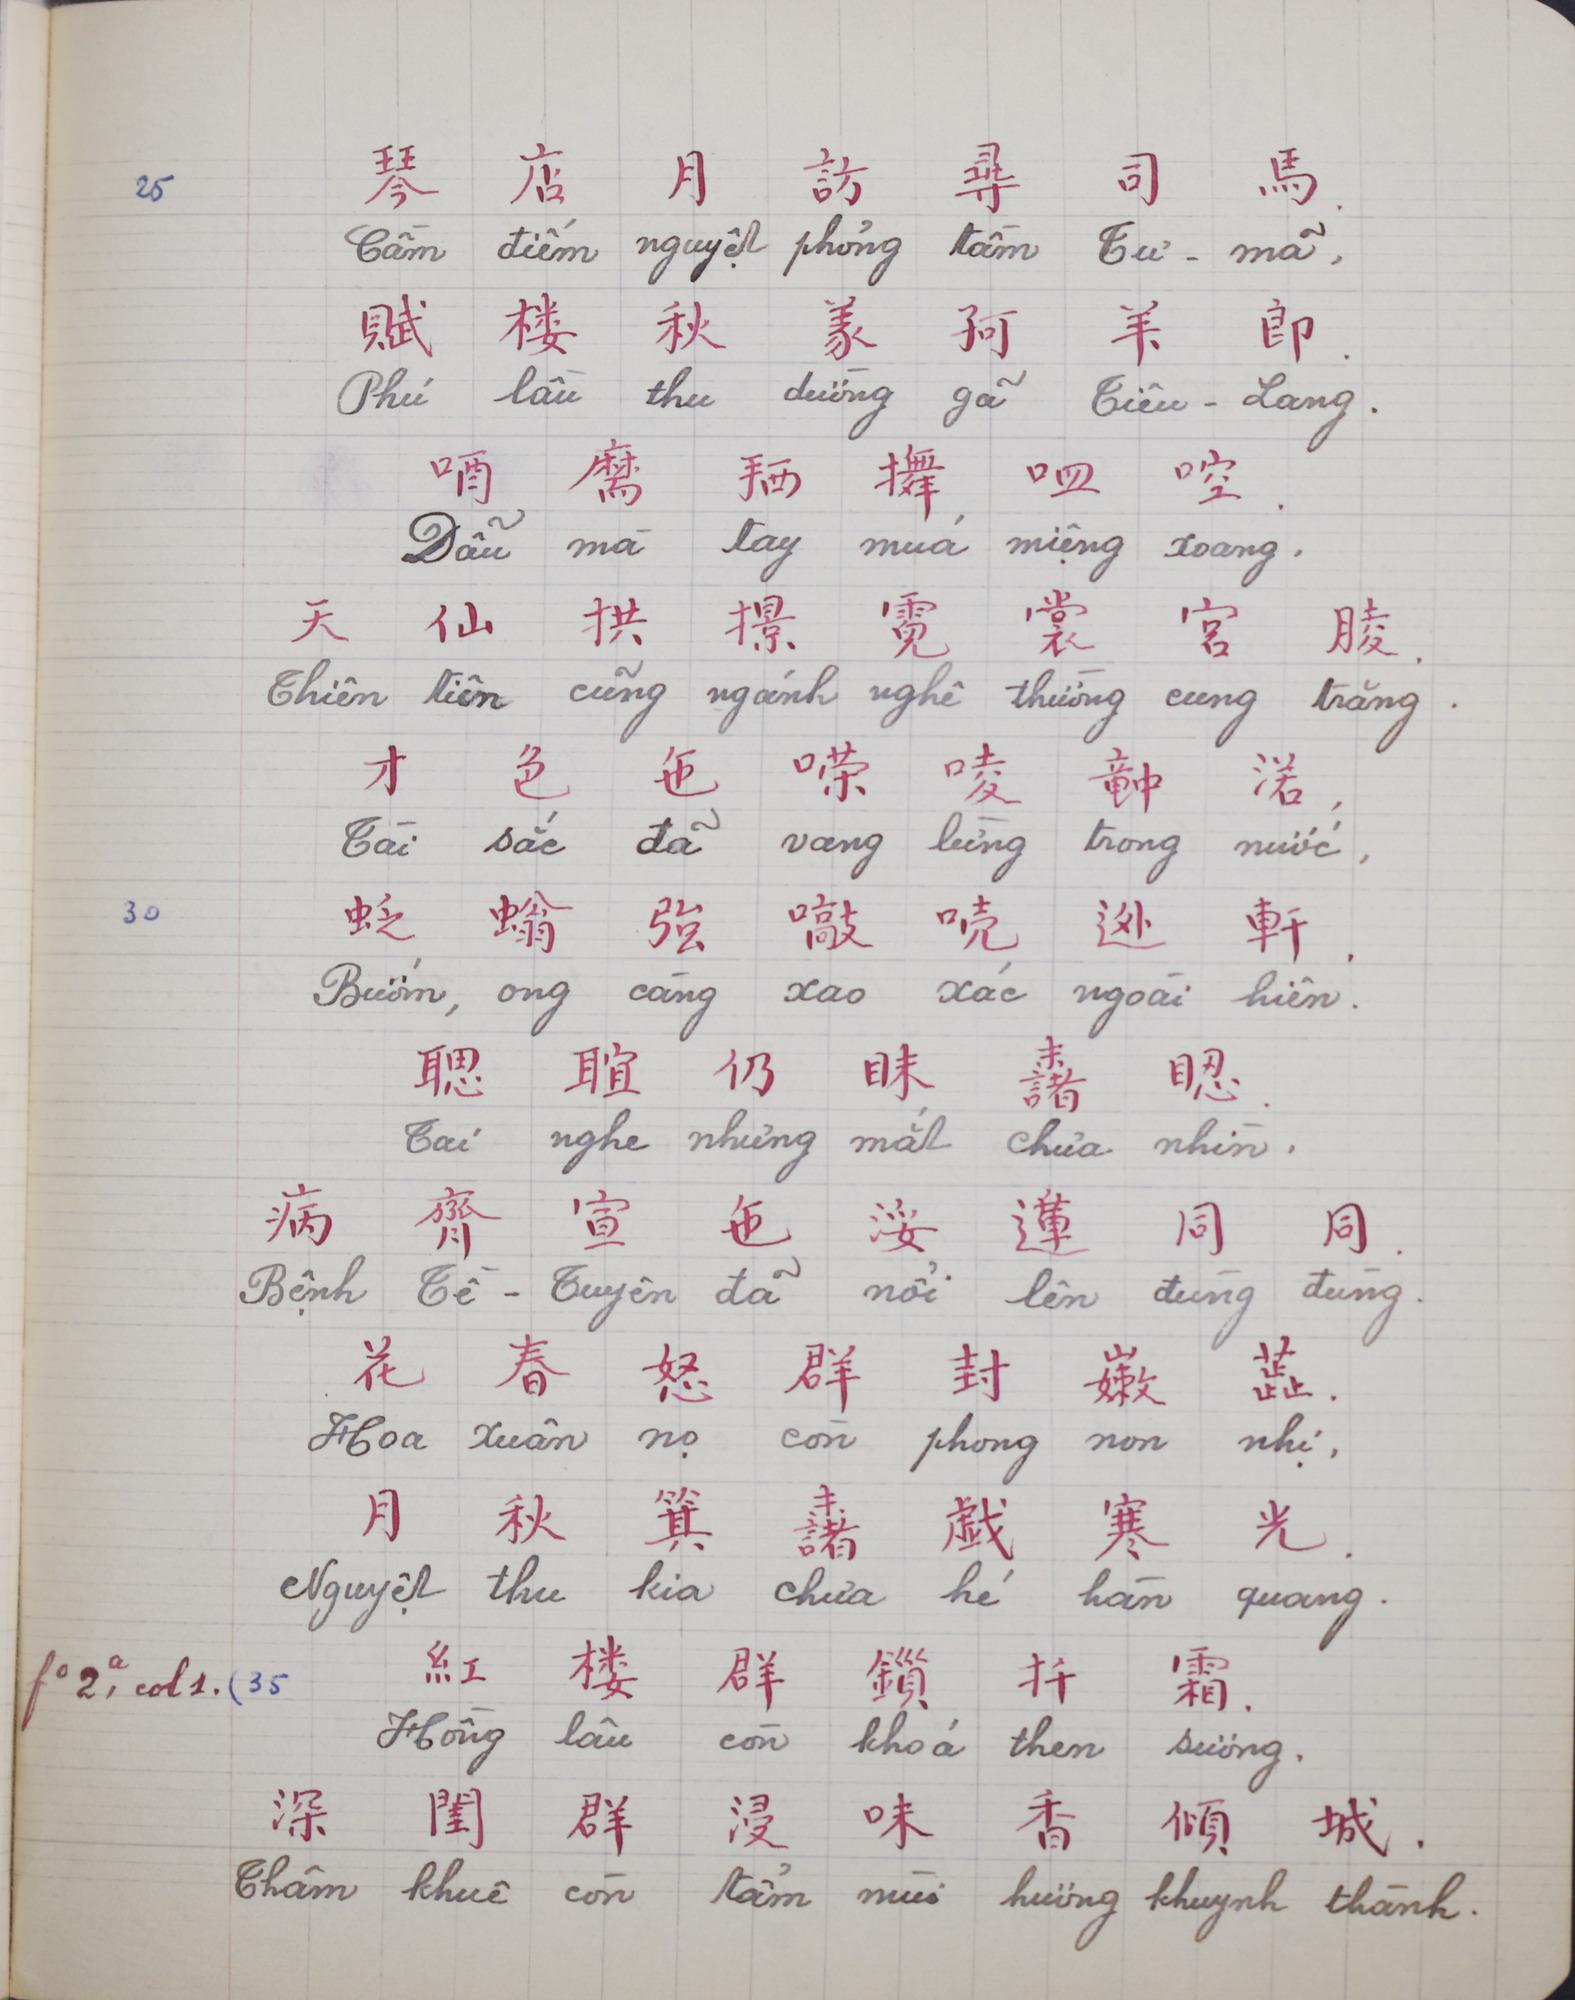 25 琴 店 月 訪 尋 司 馬.
Cầm điếm nguyệt phỏng tầm Tư-mã,
賦 楼 秋 羕 妸 羊 郎.
Phú lầu thu dường gã Tiêu-Lang.
唒 𢬣 㩇 𠰘 啌.
Dẫu mà tay múa miệng xoang.
天 仙 拱 㯲 霓 裳 宮 䏠.
Thiên tiên cũng ngánh nghê thường cung trăng.
才 色 㐌 㘇 唛 𥪝 渃,
Tài sắc đã vang lừng trong nước,
30 螉 強 𠴔 軒.
Bướm, ong càng xao xác ngoài hiên.
聰 䎳 仍 眜 𣗓
Tai nghe nhưng mắt chưa nhìn.
病 齊 宣 㐌 浽 蓮 同 同.
Bệnh Tề-Tuyên đã nổi lên đùng đùng.
花 春 怒 群 封 嫩 蕋.
Hoa xuân nọ còn phong non nhị,
月 秋 箕 𣗓 戲 寒 光.
Nguyệt thu kia chưa hé hàn quang.
fº 2, a col 1. (35 紅 楼 群 鎖 扦 霜.
Hồng lâu còn khoá then sương.
深 閨 群 浸 味 香 傾 城.
Thâm khuê còn tẩm mùi hương khuynh thành.